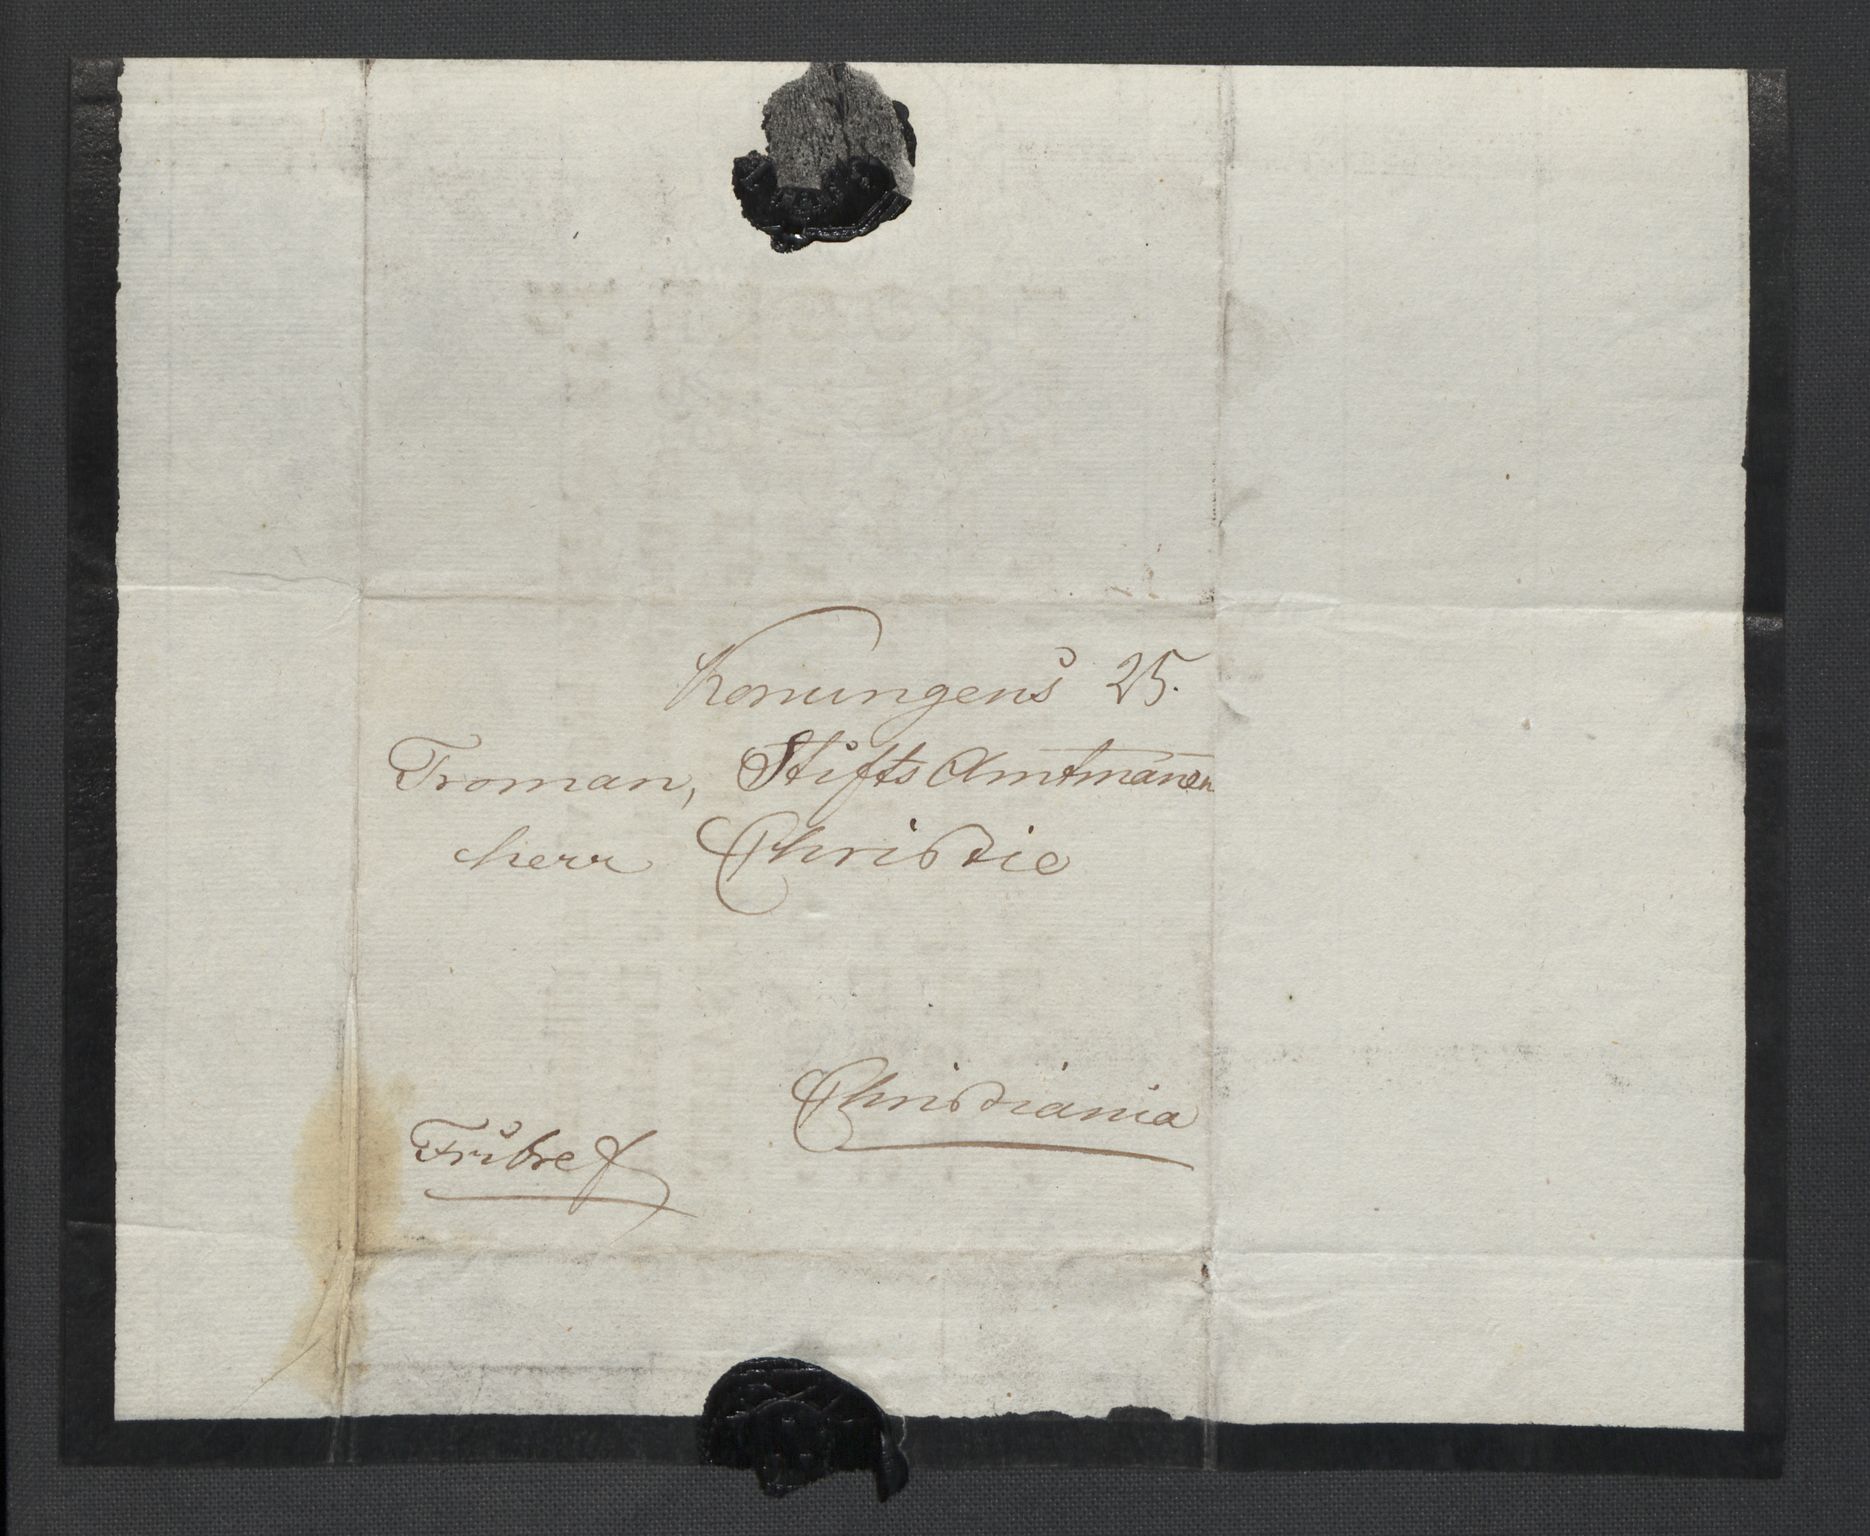 Konungens 25.
Troman, Stifts Amtmanen
herr Christie
Christiania
Fribref